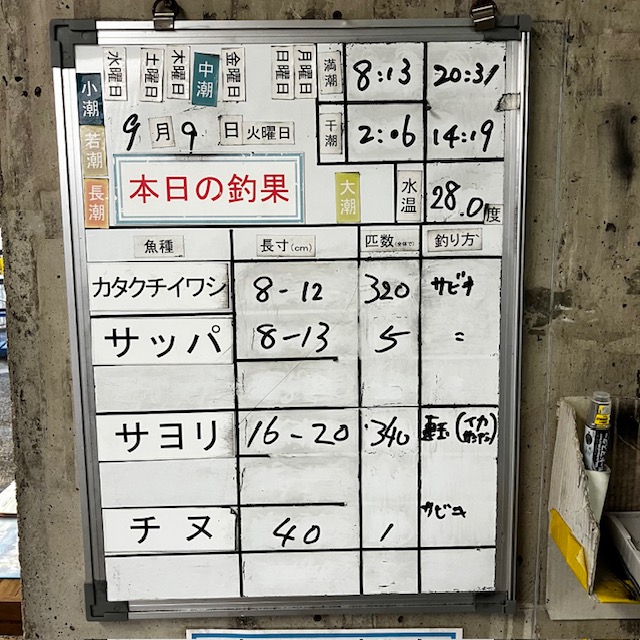 水曜日 土曜日 木曜日 中潮 金曜日 日曜日 月曜日 満潮 8:13 20:31
小潮
9月9日 火曜日 干潮 2:06 14:19
若潮
長潮 本日の釣果 大潮 水温 28.0度
魚種 長寸(cm) 匹数 釣り方
カタクチイワシ 8-12 320 サビキ
サッパ 8-13 5 〃
サヨリ 16-20 340
チヌ 40 1 サビキ